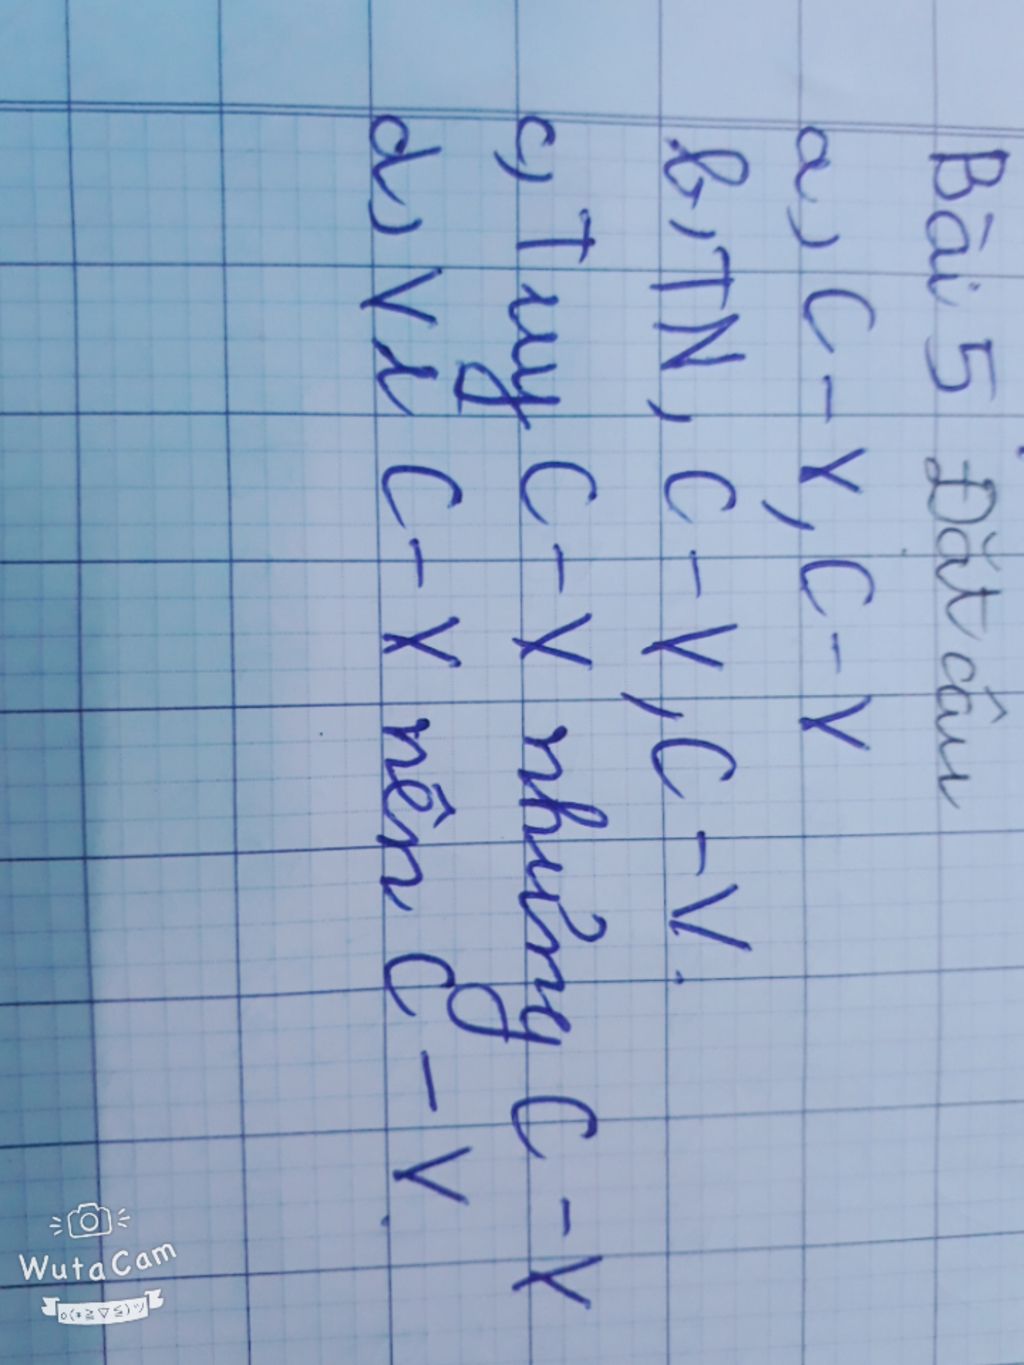 Bài 5 Đặt câu
a, C - V, C - V
b, TN, C - V, C - V.
c, Tuy C - V nhưng C - V
d, Vì C - V nên C - V.
WutaCam